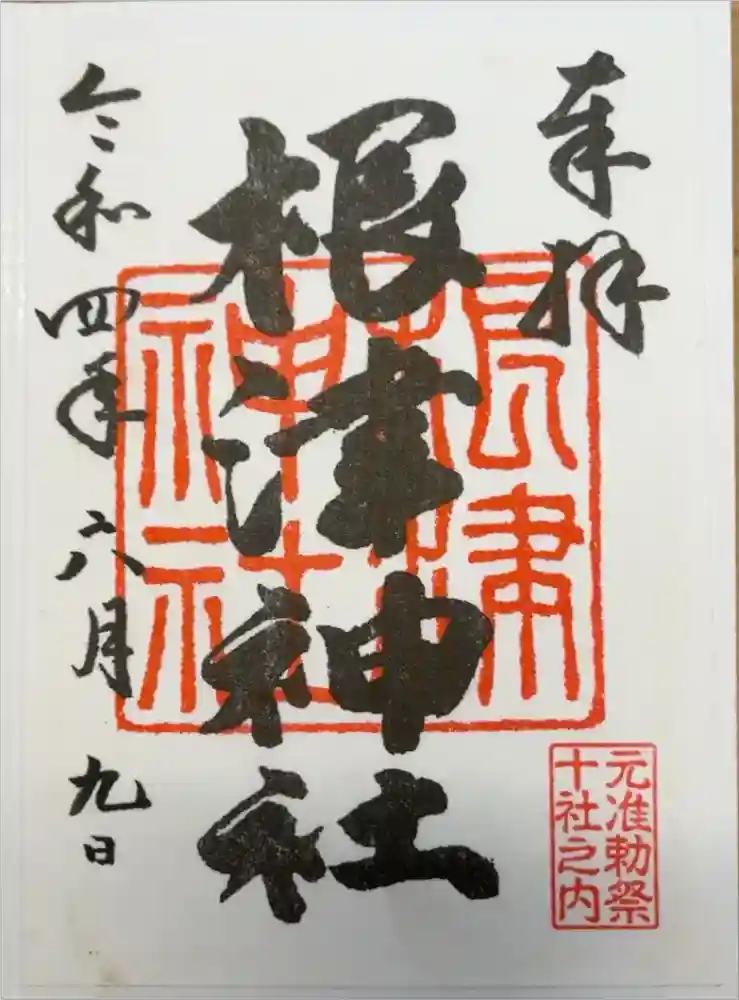 奉拝
根津神社
根津神社
元准勅祭
十社之内
令和四年六月九日